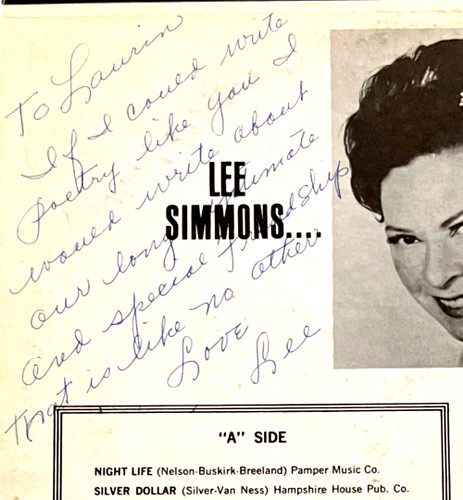 To Laurin
If I could write
poetry like you I
would write about
our long intimate
and special friendship
that is like no other
Love
Lee
LEE
SIMMONS....
"A" SIDE
NIGHT LIFE (Nelson-Buskirk-Breeland) Pamper Music Co.
SILVER DOLLAR (Silver-Van Ness) Hampshire House Pub. Co.